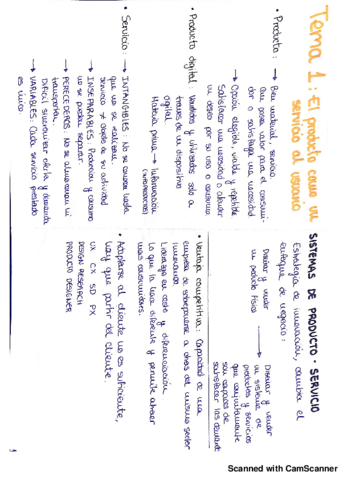 Tema 1: El producto como un
servicio al usuario
• Producto: → Bien material, servicio
que posea valor para el consumi-
dor o satisfaga una necesidad
→ Opción elegible, viable y repetible
Satisfacer una necesidad o atender
un deseo por su uso o consumo
• Producto digital: Vendidos y utilizados solo a
través de un dispositivo
digital
Materia prima → Información
(INFOPRODUCTOS)
• Servicio: → INTANGIBLES: No se conocen hasta
que no se realizan.
servicio ≠ objeto de su actividad
→ INSEPARABLES: Producción y consumo
no se pueden separar.
→ PERECEDEROS: No se almacenan ni
transportan.
Difícil sincronizar oferta y demanda
→ VARIABLES: Cada servicio prestado
es único.
SISTEMAS DE PRODUCTO - SERVICIO
Estrategia de innovación, cambia el
enfoque de negocio:
Diseñar y vender
un producto físico
→
Diseñar y vender
un sistema de
productos y servicios
que conjuntamente
sean capaces de
satisfacer las demandas
• Ventaja competitiva: Capacidad de una
empresa de sobreponerse a otras del mismo sector
innovando
Liderazgo en costo y diferenciación.
Lo que la hace diferente y permite atraer
más consumidores.
• Adaptarse al cliente no es suficiente,
hay que partir del cliente.
UX CX SD PX
DESIGN RESEARCH
PRODUCT DESIGNER
1
Scanned with CamScanner